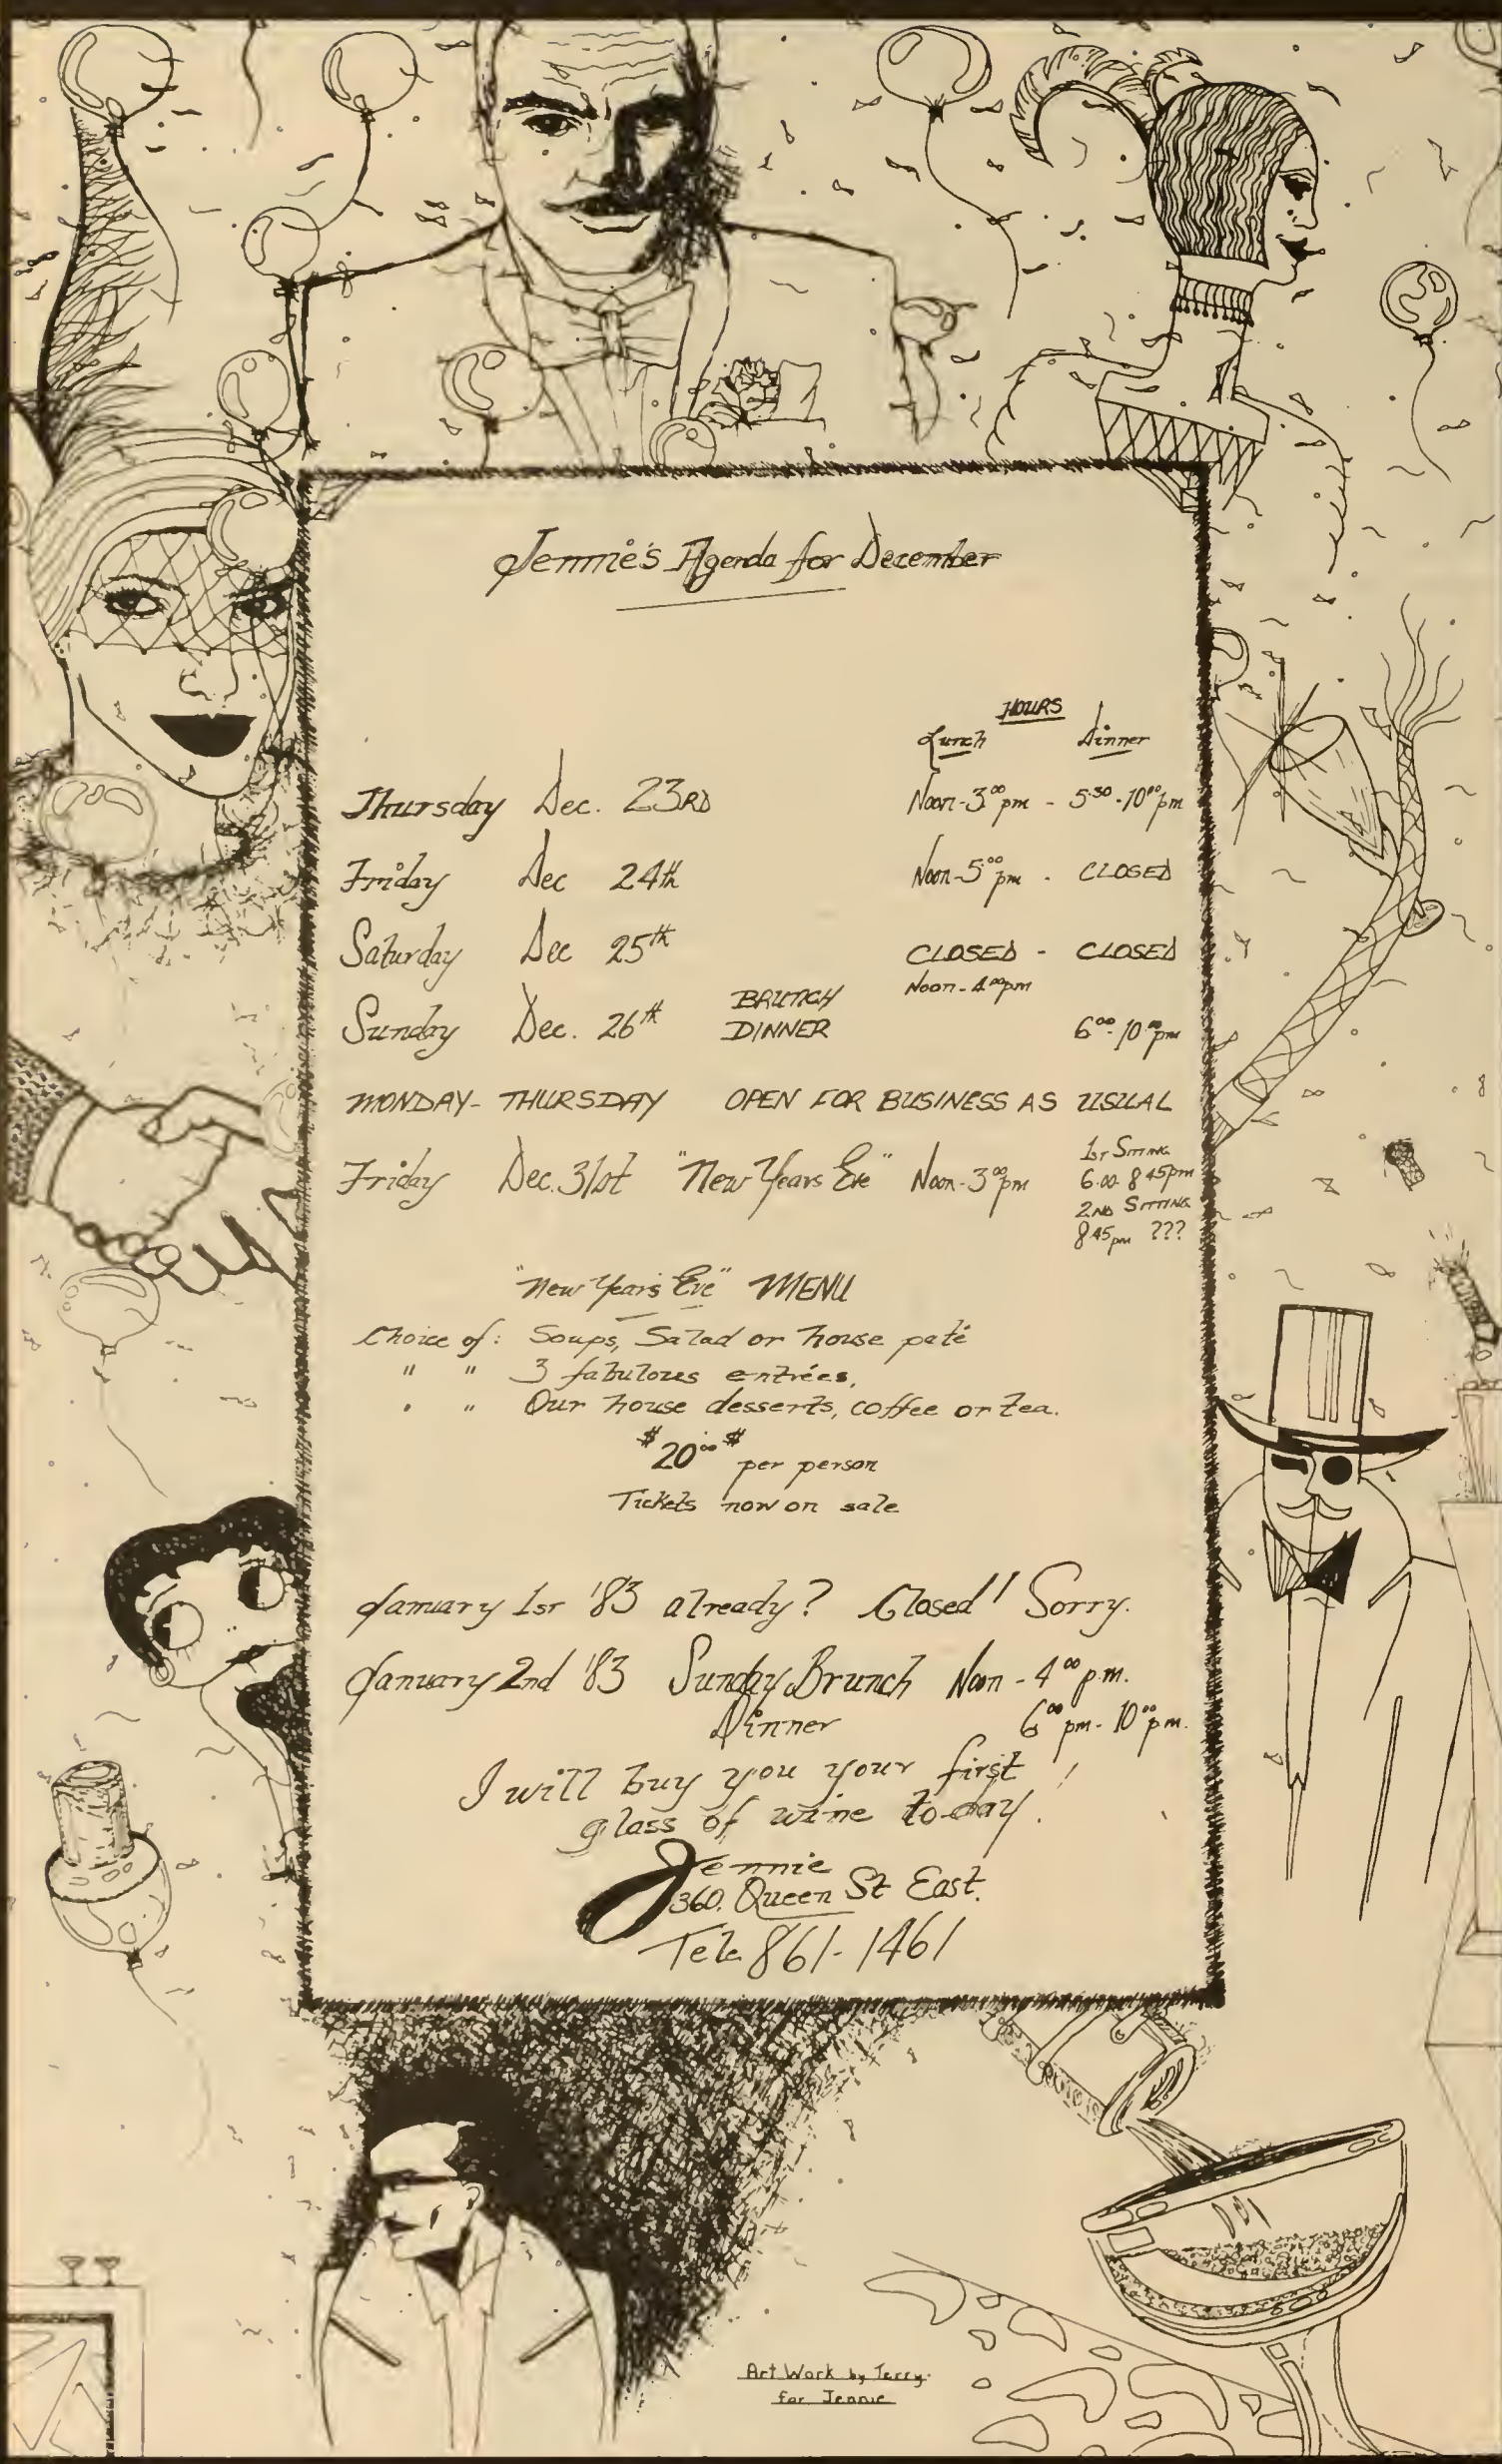 Jennie's Agenda for December
HOURS
Lunch Dinner
Thursday Dec. 23RD Noon-3⁰⁰pm - 5³⁰-10⁰⁰pm
Friday Dec 24th Noon-5⁰⁰pm - CLOSED
Saturday Dec 25th CLOSED - CLOSED
BRUNCH Noon-4⁰⁰pm
Sunday Dec. 26th DINNER 6⁰⁰-10⁰⁰pm
MONDAY- THURSDAY OPEN FOR BUSINESS AS USUAL
Friday Dec. 31st "New Years Eve" Noon-3⁰⁰pm
1ST SITTING
6.00-8 45pm
2ND SITTING
8 45pm ???
"New Year's Eve" MENU
Choice of: Soups, Salad or house paté
" " 3 fabulous entrées,
" " Our house desserts, coffee or tea.
$20⁰⁰$ per person
Tickets now on sale
January 1st '83 already? Closed! Sorry.
January 2nd '83 Sunday Brunch Noon - 4⁰⁰ p.m.
Dinner 6⁰⁰ pm - 10⁰⁰ p.m.
I will buy you your first
glass of wine to-day!
Jennie
360. Queen St East.
Tele. 861-1461
Art Work by Terry.
for Jennie